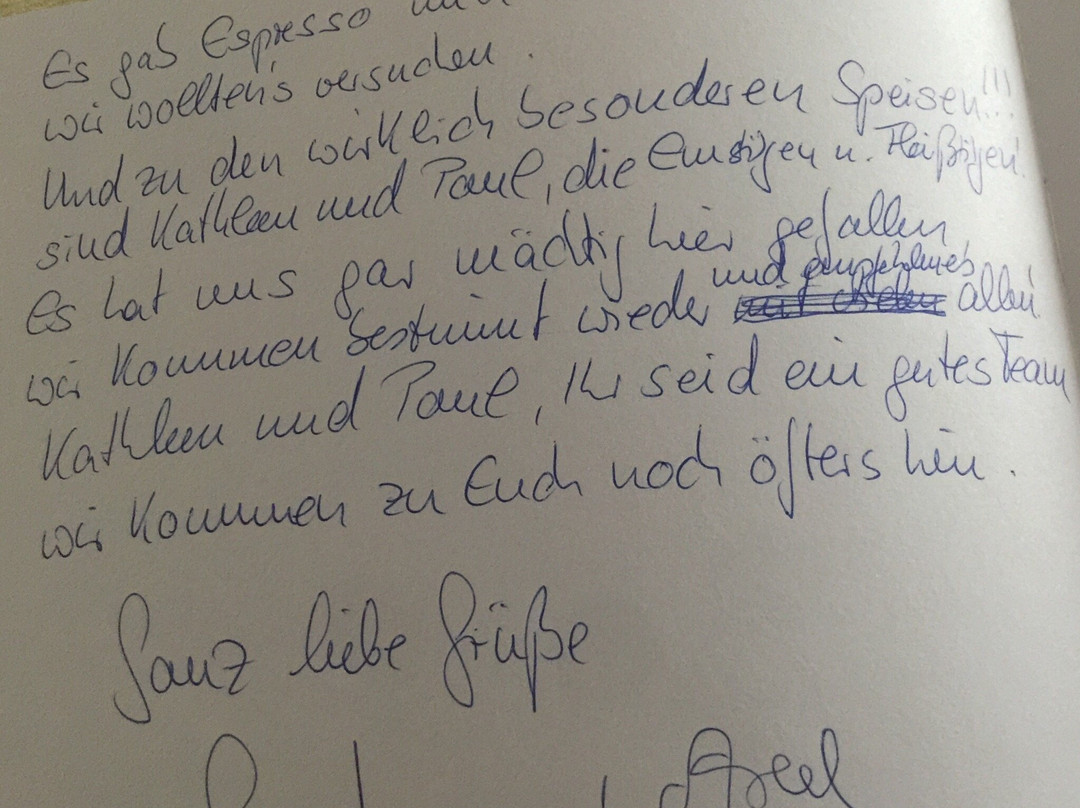 Es gab Espresso und
wir wollten's versuchen.
Und zu den wirklich besonderen Speisen!!!
sind Kathleen und Paul, die Emsigen u. Fleißigen!
Es hat uns gar mächtig hier gefallen
wir kommen bestimmt wieder und empfehlen's allen
Kathleen und Paul, Ihr seid ein gutes Team
wir kommen zu Euch noch öfters hin.
Ganz liebe Grüße
Axel